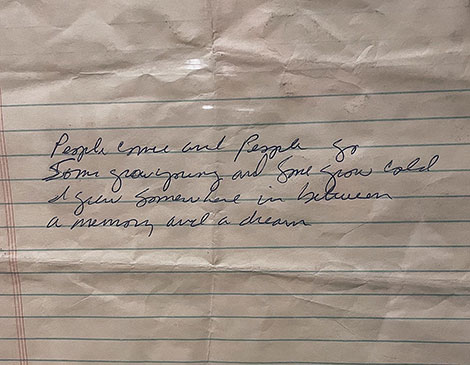 People come and People go
Some grow young and Some grow cold
I grew somewhere in between
a memory and a dream